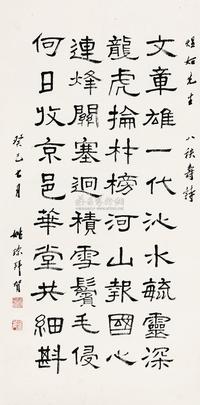 煜如先生 八秩壽詩
文章雄一代沁水毓靈深
龍虎掄材榜河山報國心
連烽關塞迥積雪鬢毛侵
何日收京邑華堂共細斟
癸巳七月 姚琮拜賀